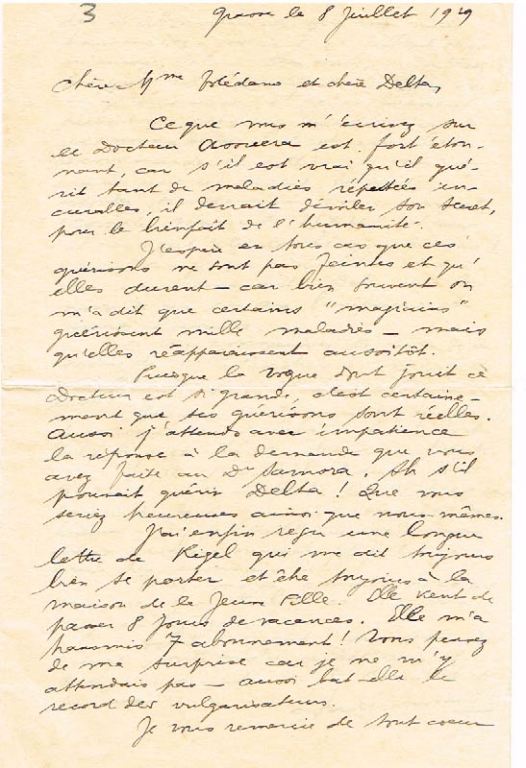 3
Grasse le 8 Juillet 1929
Chère Mme Tolédano et chère Delta,
Ce que vous m'écrivez sur
le Docteur Asuera est fort éton-
nant, car s'il est vrai qu'il gué-
rit tant de maladies réputées in-
curables, il devrait dévoiler son secret,
pour le bienfait de l'humanité.
J'espère en tous cas que ces
guérisons ne sont pas feintes et qu'
elles durent — car bien souvent on
m'a dit que certains "magiciens"
guérissent mille maladies — mais
qu'elles réapparaissent aussitôt.
Puisque la vogue dont jouit ce
Docteur est si grande, c'est certaine-
ment que ses guérisons sont réelles.
Aussi j'attends avec impatience
la réponse à la demande que vous
avez faite au Dr Samora. Ah s'il
pouvait guérir Delta! Que vous
seriez heureuses ainsi que nous-mêmes.
J'ai enfin reçu une longue
lettre de Rigel qui me dit toujours
bien se porter et être toujours à la
maison de la Jeune Fille. Elle vient de
passer 8 jours de vacances. Elle m'a
transmis 7 abonnement! Vous pensez
de ma surprise car je ne m'y
attendais pas — aussi bat-elle le
record des vulgarisateurs.
Je vous remercie de tout coeur